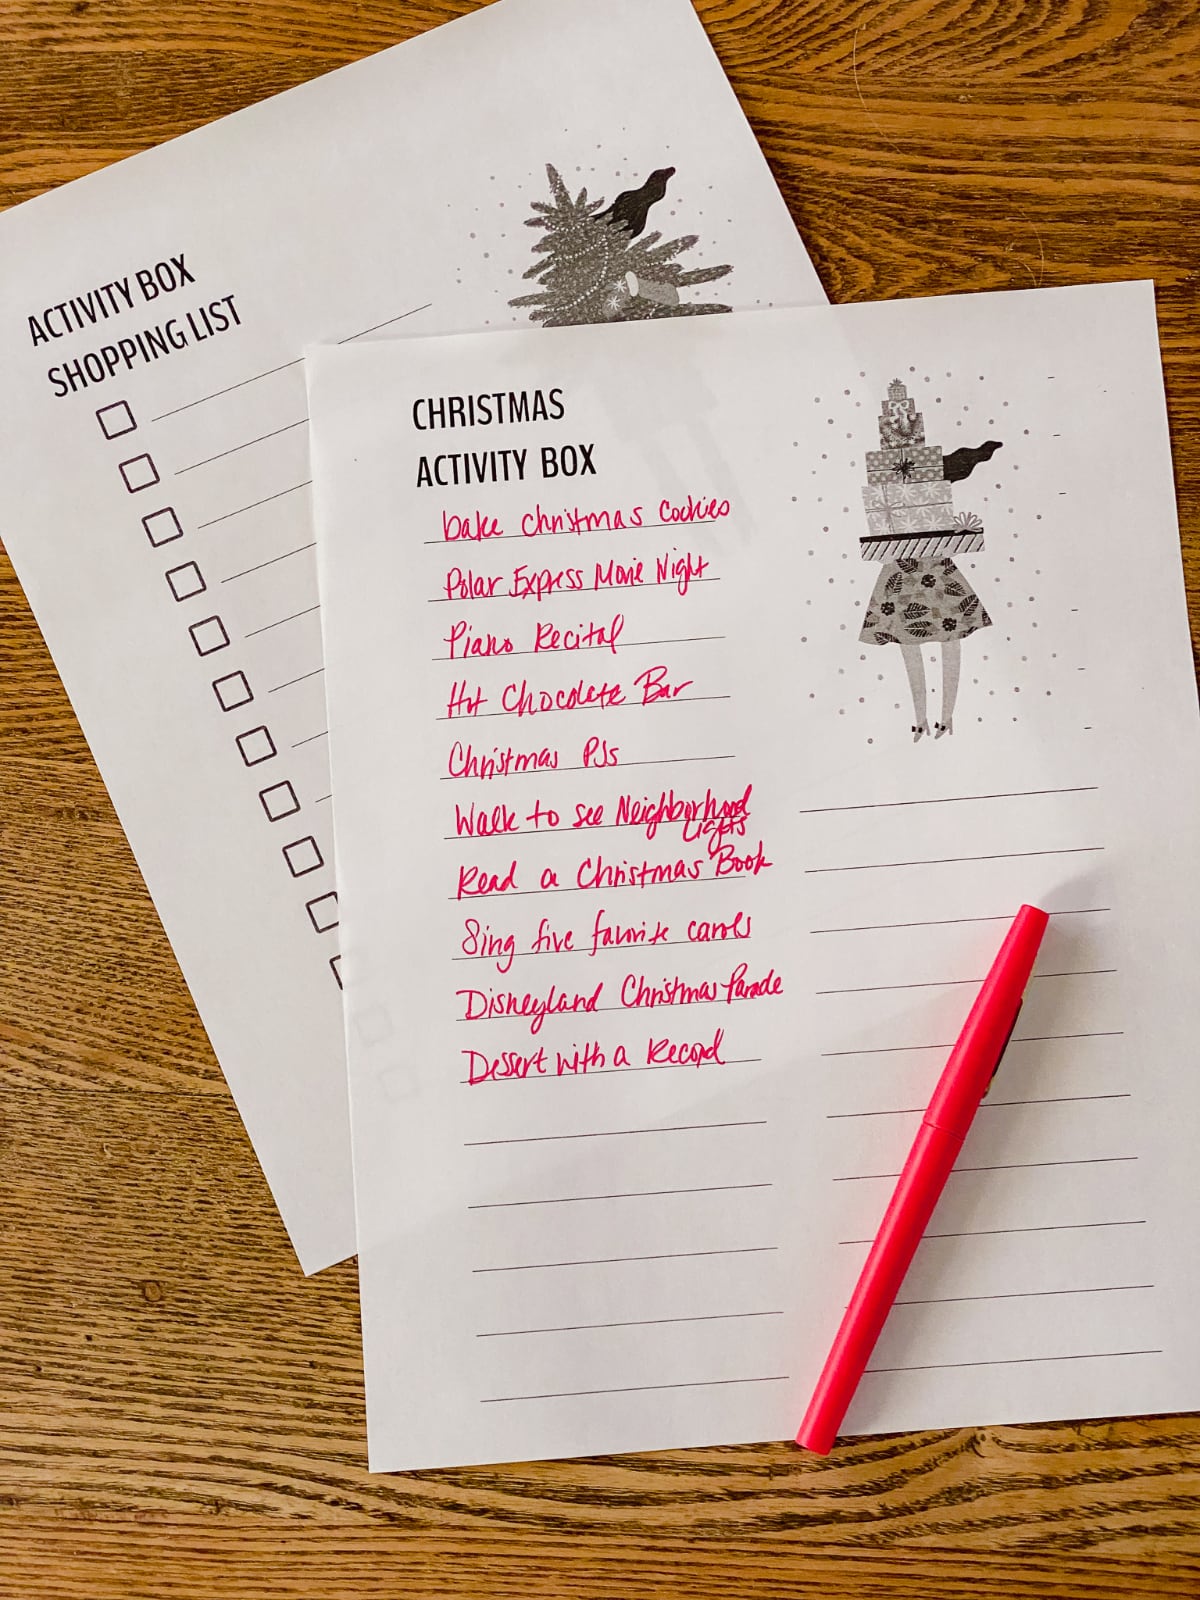 ACTIVITY BOX
SHOPPING LIST
CHRISTMAS
ACTIVITY BOX
bake Christmas Cookies
Polar Express Movie Night
Piano Recital
Hot Chocolate Bar
Christmas PJs
Walk to see Neighborhood
Lights
Read a Christmas Book
Sing five favorite carols
Disneyland Christmas Parade
Dessert with a Record